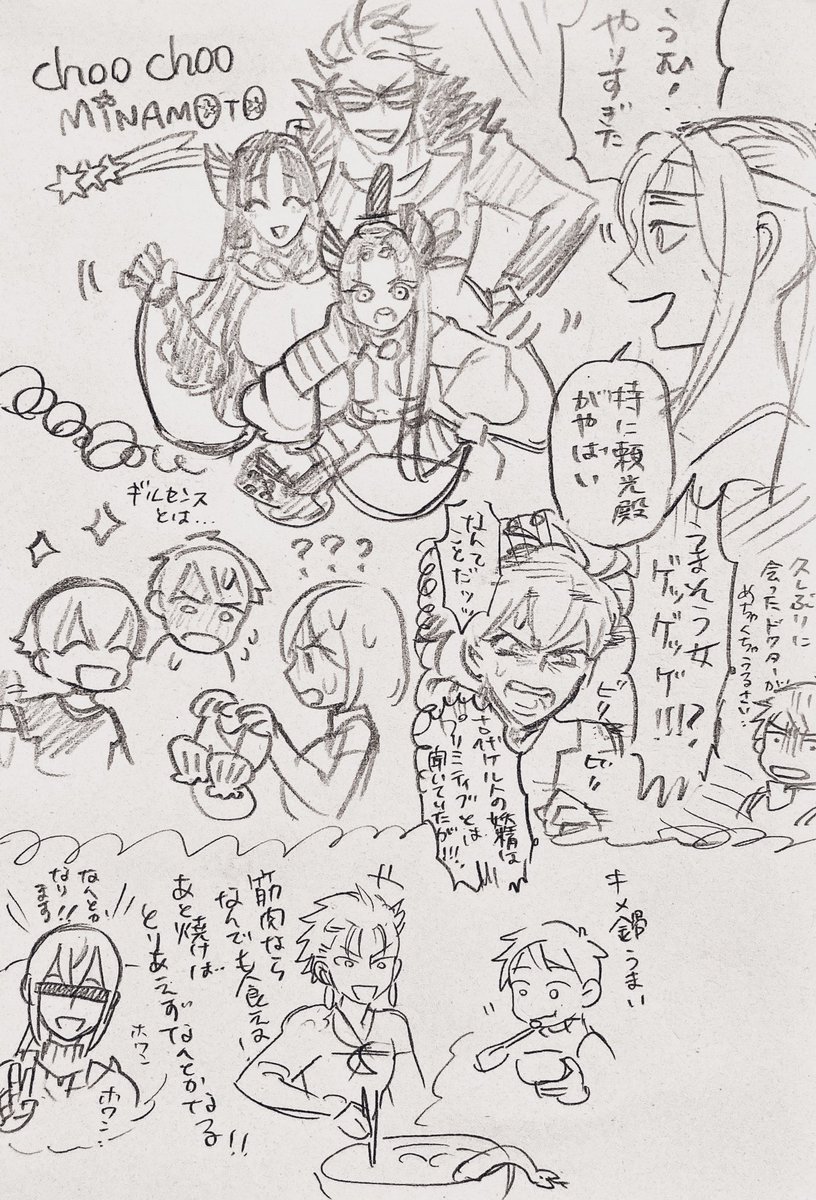 choo choo
MINAMOTO
うむ!
やりすぎた
特に頼光殿
がやばい
ギルセンス
とは…
???
なんて
ことだッッ
うまそう女
ゲッゲッゲ!!!?
久しぶりに
会ったドクターが
めちゃくちゃうるさい…
古代ケルトの妖精は
プリミティブとは
聞いていたが!!!
キメ鍋うまい
筋肉なら
なんでも食えは!
あと焼けば
とりあえずなんとかなる!!
なんとか
なり!!
ます
ホワン
ホワン